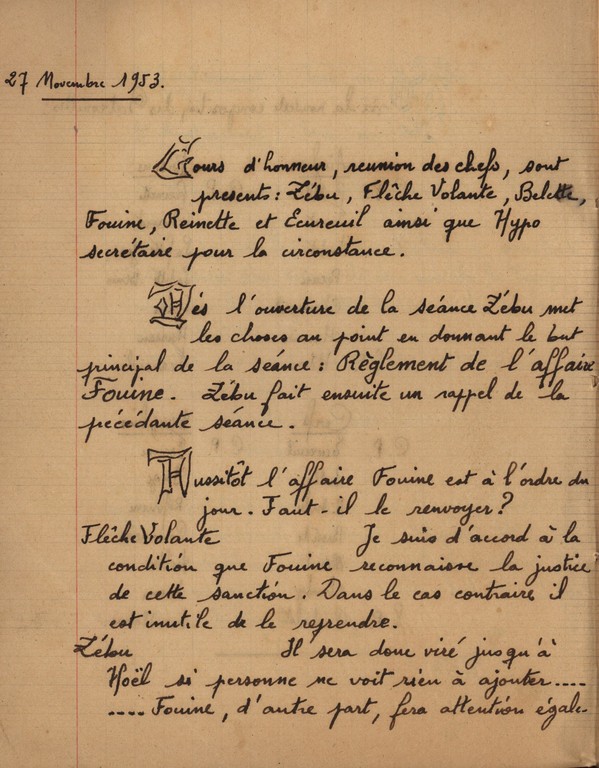 27 Novembre 1953.
Cours d'honneur, reunion des chefs, sont
presents: Zébu, Flêche Volante, Belette,
Fouine, Reinette et Ecureuil ainsi que Hypo
secrétaire pour la circonstance.
Dés l'ouverture de la séance Zébu met
les choses au point en donnant le but
principal de la seánce : Règlement de l'affaire
Fouine. Zébu fait ensuite un rappel de la
pécédante séance.
Aussitôt l'affaire Fouine est à l'ordre du
jour. Faut-il le renvoyer?
Flêche Volante Je suis d'accord à la
condition que Fouine reconnaisse la justice
de cette sanction. Dans le cas contraire il
est inutile de le reprendre.
Zébu Il sera donc viré jusqu'à
Noël si personne ne voit rien à ajouter....
.... Fouine, d'autre part, fera attention égale-